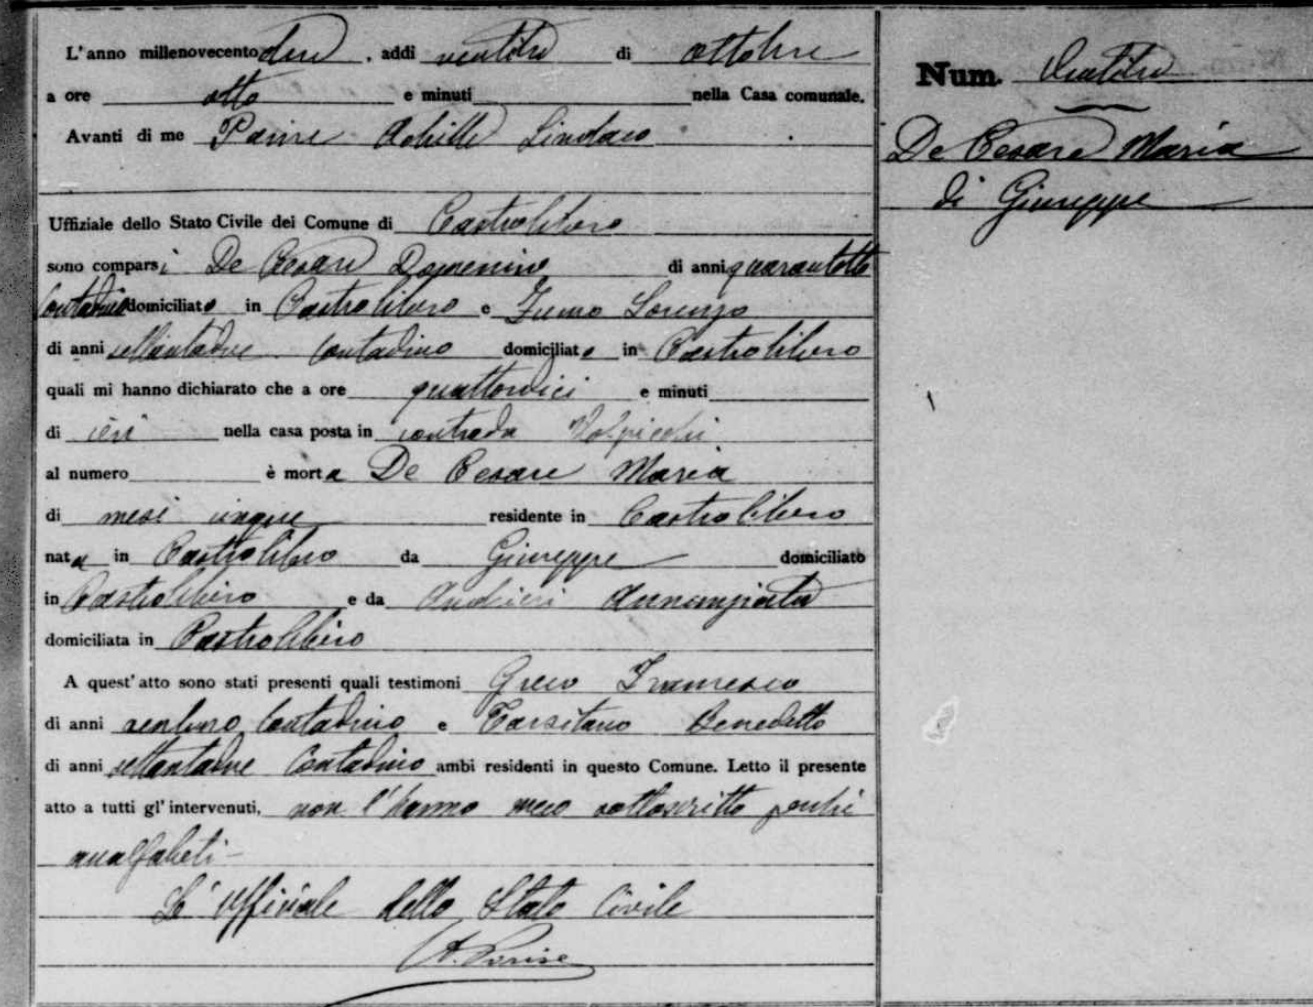 L'anno millenovecento due, addi ventitre di ottobre
a ore otto e minuti nella Casa comunale.
Avanti di me Achille Sindaco
Uffiziale dello Stato Civile del Comune di Castrolibero
sono comparsi De Cesare Domenico di anni quarantotto
contadino domiciliato in Castrolibero e Zumo Lorenzo
di anni settantadue contadino domiciliato in Castrolibero
quali mi hanno dichiarato che a ore quattordici e minuti
di ieri nella casa posta in contrada Volpicchi
al numero è morta De Cesare Maria
di mesi cinque residente in Castrolibero
nata in Castrolibero da Giuseppe domiciliato
in Castrolibero e da Annunziata
domiciliata in Castrolibero
A quest'atto sono stati presenti quali testimoni Greco Francesco
di anni contadino e Tarsitano Benedetto
di anni settantadue Contadino ambi residenti in questo Comune. Letto il presente
atto a tutti gl'intervenuti, non l'hanno meco sottoscritto perchè
analfabeti-
L'Officiale dello Stato Civile
A. Parise
Num. Ventitre
De Cesare Maria
di Giuseppe